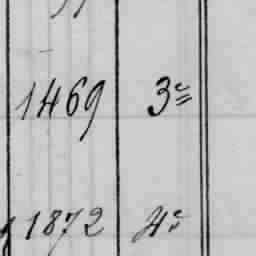 1469 3º
1872 4º